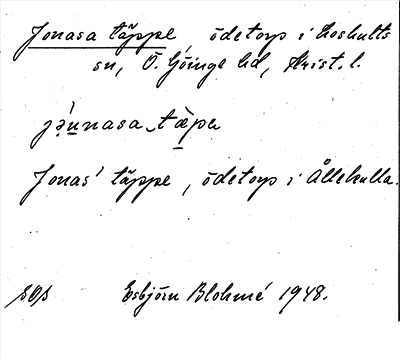 Jonasa täppe, ödetorp i Loshults
sn, Ö. Göinge hd, Krist. l.
jə́unasa tæpə
Jonas' täppe, ödetorp i Ållekulla.
Esbjörn Blohmé 1948.